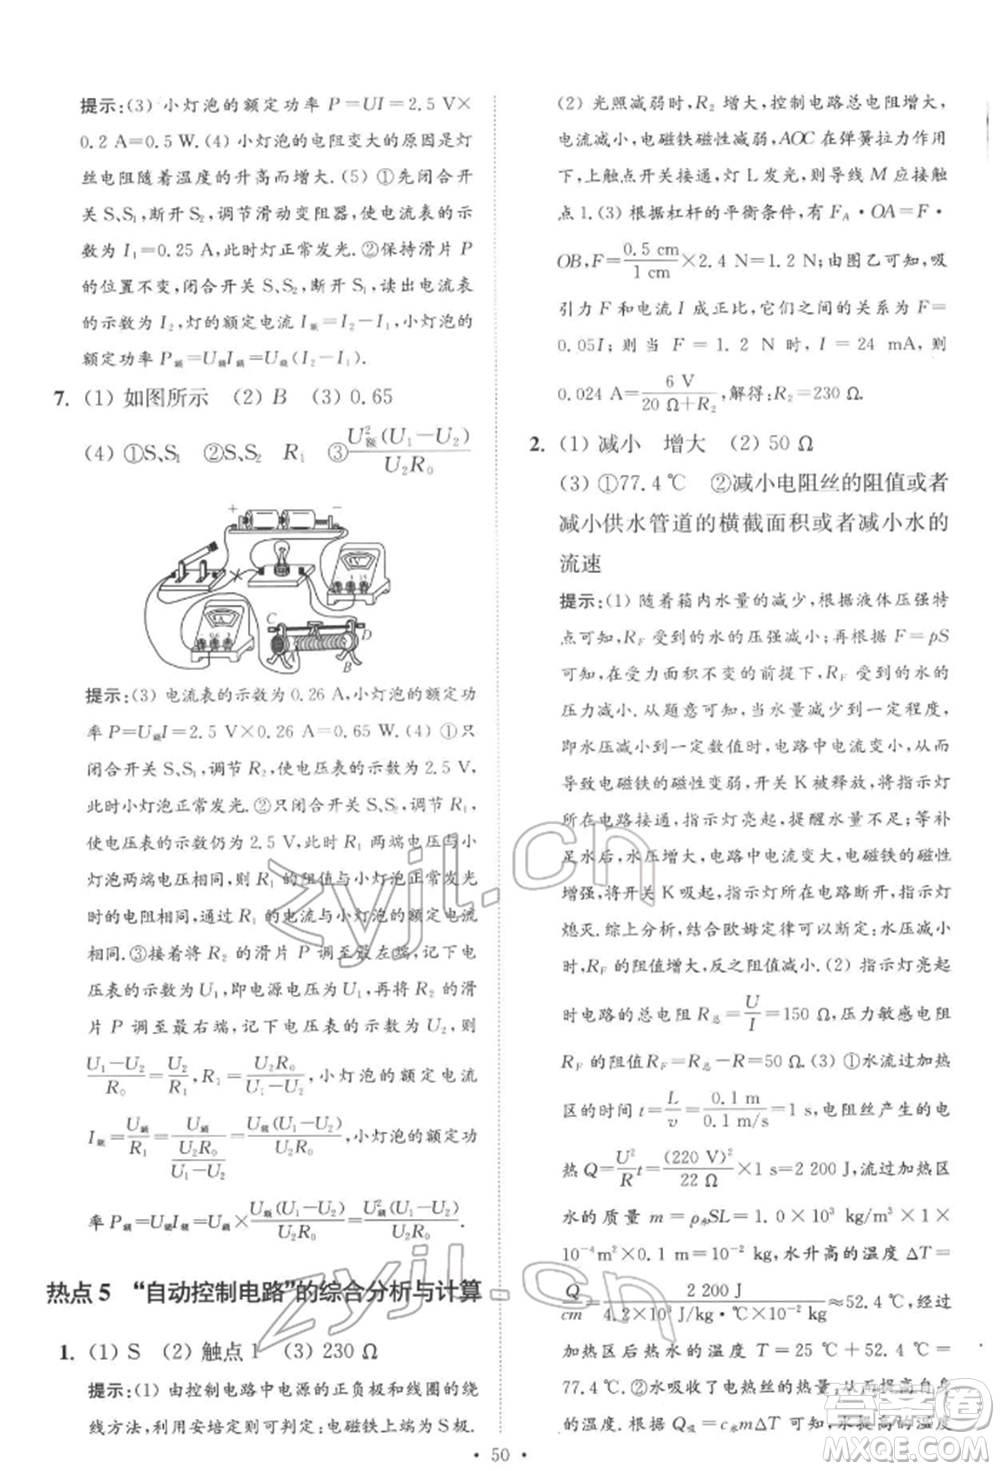 提示:(3) 小灯泡的额定功率 P=UI=2.5 V×
0.2 A=0.5 W.(4) 小灯泡的电阻变大的原因是灯
丝电阻随着温度的升高而增大.(5) ①先闭合开
关 S、S₁,断开 S₂,调节滑动变阻器,使电流表的示
数为 I₁=0.25 A,此时灯正常发光.②保持滑片 P
的位置不变,闭合开关 S、S₂,断开 S₁,读出电流表
的示数为 I₂,灯的额定电流 I额=I₂-I₁,小灯泡的
额定功率 P额=U额I额=U额(I₂-I₁).
7. (1) 如图所示 (2) B (3) 0.65
(4) ①S、S₁ ②S、S₂ R₁ ③U额²(U₁-U₂)/U₂R₀
+ -
C D
P
B
提示:(3) 电流表的示数为 0.26 A,小灯泡的额定功
率 P=U额I=2.5 V×0.26 A=0.65 W.(4) ①只
闭合开关 S、S₁,调节 R₂,使电压表的示数为 2.5 V,
此时小灯泡正常发光.②只闭合开关 S、S₂,调节 R₁,
电压表的示数仍为 2.5 V,此时 R₁ 两端电压与小
灯泡两端电压相同,则 R₁ 的阻值与小灯泡正常发光
时的电阻相同,通过 R₁ 的电流与小灯泡的额定电流
相同.③接着将 R₂ 的滑片 P 调至最左端,记下电
压表的示数为 U₁,即电源电压为 U₁,再将 R₂ 的滑
片 P 调至最右端,记下电压表的示数为 U₂,则
(U₁-U₂)/R₀=U₂/R₁,R₁=U₂R₀/(U₁-U₂),小灯泡的额定电流
I额=U额/R₁=U额/(U₂R₀/(U₁-U₂))=U额(U₁-U₂)/U₂R₀,小灯泡的额定功
率 P额=U额I额=U额·U额(U₁-U₂)/U₂R₀=U额²(U₁-U₂)/U₂R₀.
热点 5 “自动控制电路”的综合分析与计算
1. (1) S (2) 触点 1 (3) 230 Ω
提示:(1) 由控制电路中电源的正负极和线圈的绕
线方法,利用安培定则可判定:电磁铁上端为 S 极.
(2) 光照减弱时,R₂ 增大,控制电路总电阻增大,电
流减小,电磁铁磁性减弱,AOC 在弹簧拉力作用
下,上触点开关接通,灯 L 发光,则导线 M 应接触
点 1.(3) 根据杠杆的平衡条件,有 F_A·OA=F·
OB,F=0.5 cm/1 cm×2.4 N=1.2 N;由图乙可知,吸
引力 F 和电流 I 成正比,它们之间的关系为 F=
0.05I;则当 F=1.2 N 时,I=24 mA,则
0.024 A=6 V/(20 Ω+R₂),解得:R₂=230 Ω.
2. (1) 减小 增大 (2) 50 Ω
(3) ①77.4 ℃ ②减小电阻丝的阻值或者
减小供水管道的横截面积或者减小水的
流速
提示:(1) 随着箱内水量的减少,根据液体压强特
点可知,R_F 受到的水的压强减小;再根据 F=pS
可知,在受力面积不变的前提下,R_F 受到的水的
压力减小.从题意可知,当水量减少到一定程度,
即水压小到一定数值时,电路中电流变小,从而
导致电磁铁的磁性变弱,开关 K 被释放,将指示灯
所在的电路接通,指示灯亮起,提醒水量不足.补
足水后,水压增大,电路中电流变大,电磁铁的磁性
增强,将开关 K 吸起,指示灯所在电路断开,指示灯
熄灭.综上分析,结合欧姆定律可以断定:水压减小
时,R_F 的阻值增大,反之阻值减小.(2) 指示灯亮起
时电路的总电阻 R总=U/I=150 Ω,压力敏感电阻
R_F 的阻值 R_F=R总-R=50 Ω.(3) ①水流过加热
区的时间 t=L/v=0.1 m/0.1 m/s=1 s,电阻丝产生的电
热 Q=U²/R t=(220 V)²/22 Ω×1 s=2 200 J,流过加热区
水的质量 m=ρ水SL=1.0×10³ kg/m³×
10⁻⁴ m²×0.1 m=10⁻² kg,水升高的温度 ΔT=
Q/c水m=2 200 J/(4.2×10³ J/(kg·℃)×10⁻² kg)≈52.4 ℃,经过
加热区后水的温度 T=25 ℃+52.4 ℃=
77.4 ℃.②水吸收了电热丝的热量,从而提高自身
的温度.根据 Q吸=c水mΔT 可知,要提高水的
· 50 ·
zyjl.cn
zyjl.cn
答案圈
MXQE.COM